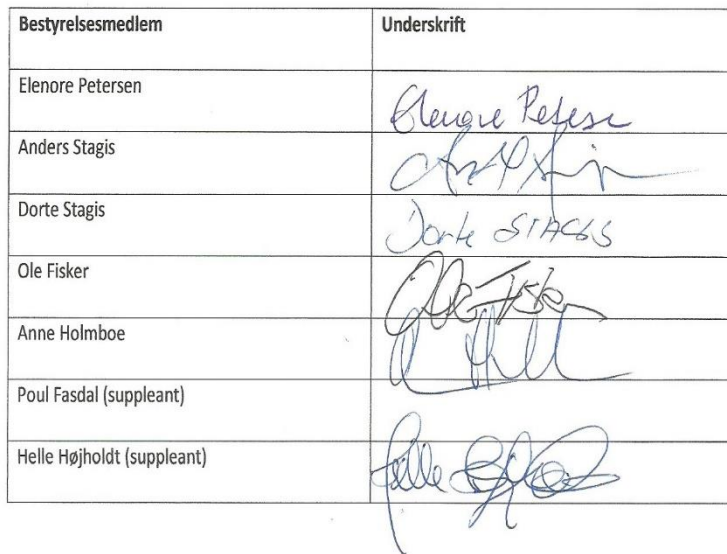 Bestyrelsesmedlem Underskrift
Elenore Petersen Elenore Petersen
Anders Stagis
Dorte Stagis Dorte STAGIS
Ole Fisker Ole Fisker
Anne Holmboe
Poul Fasdal (suppleant)
Helle Højholdt (suppleant) Helle